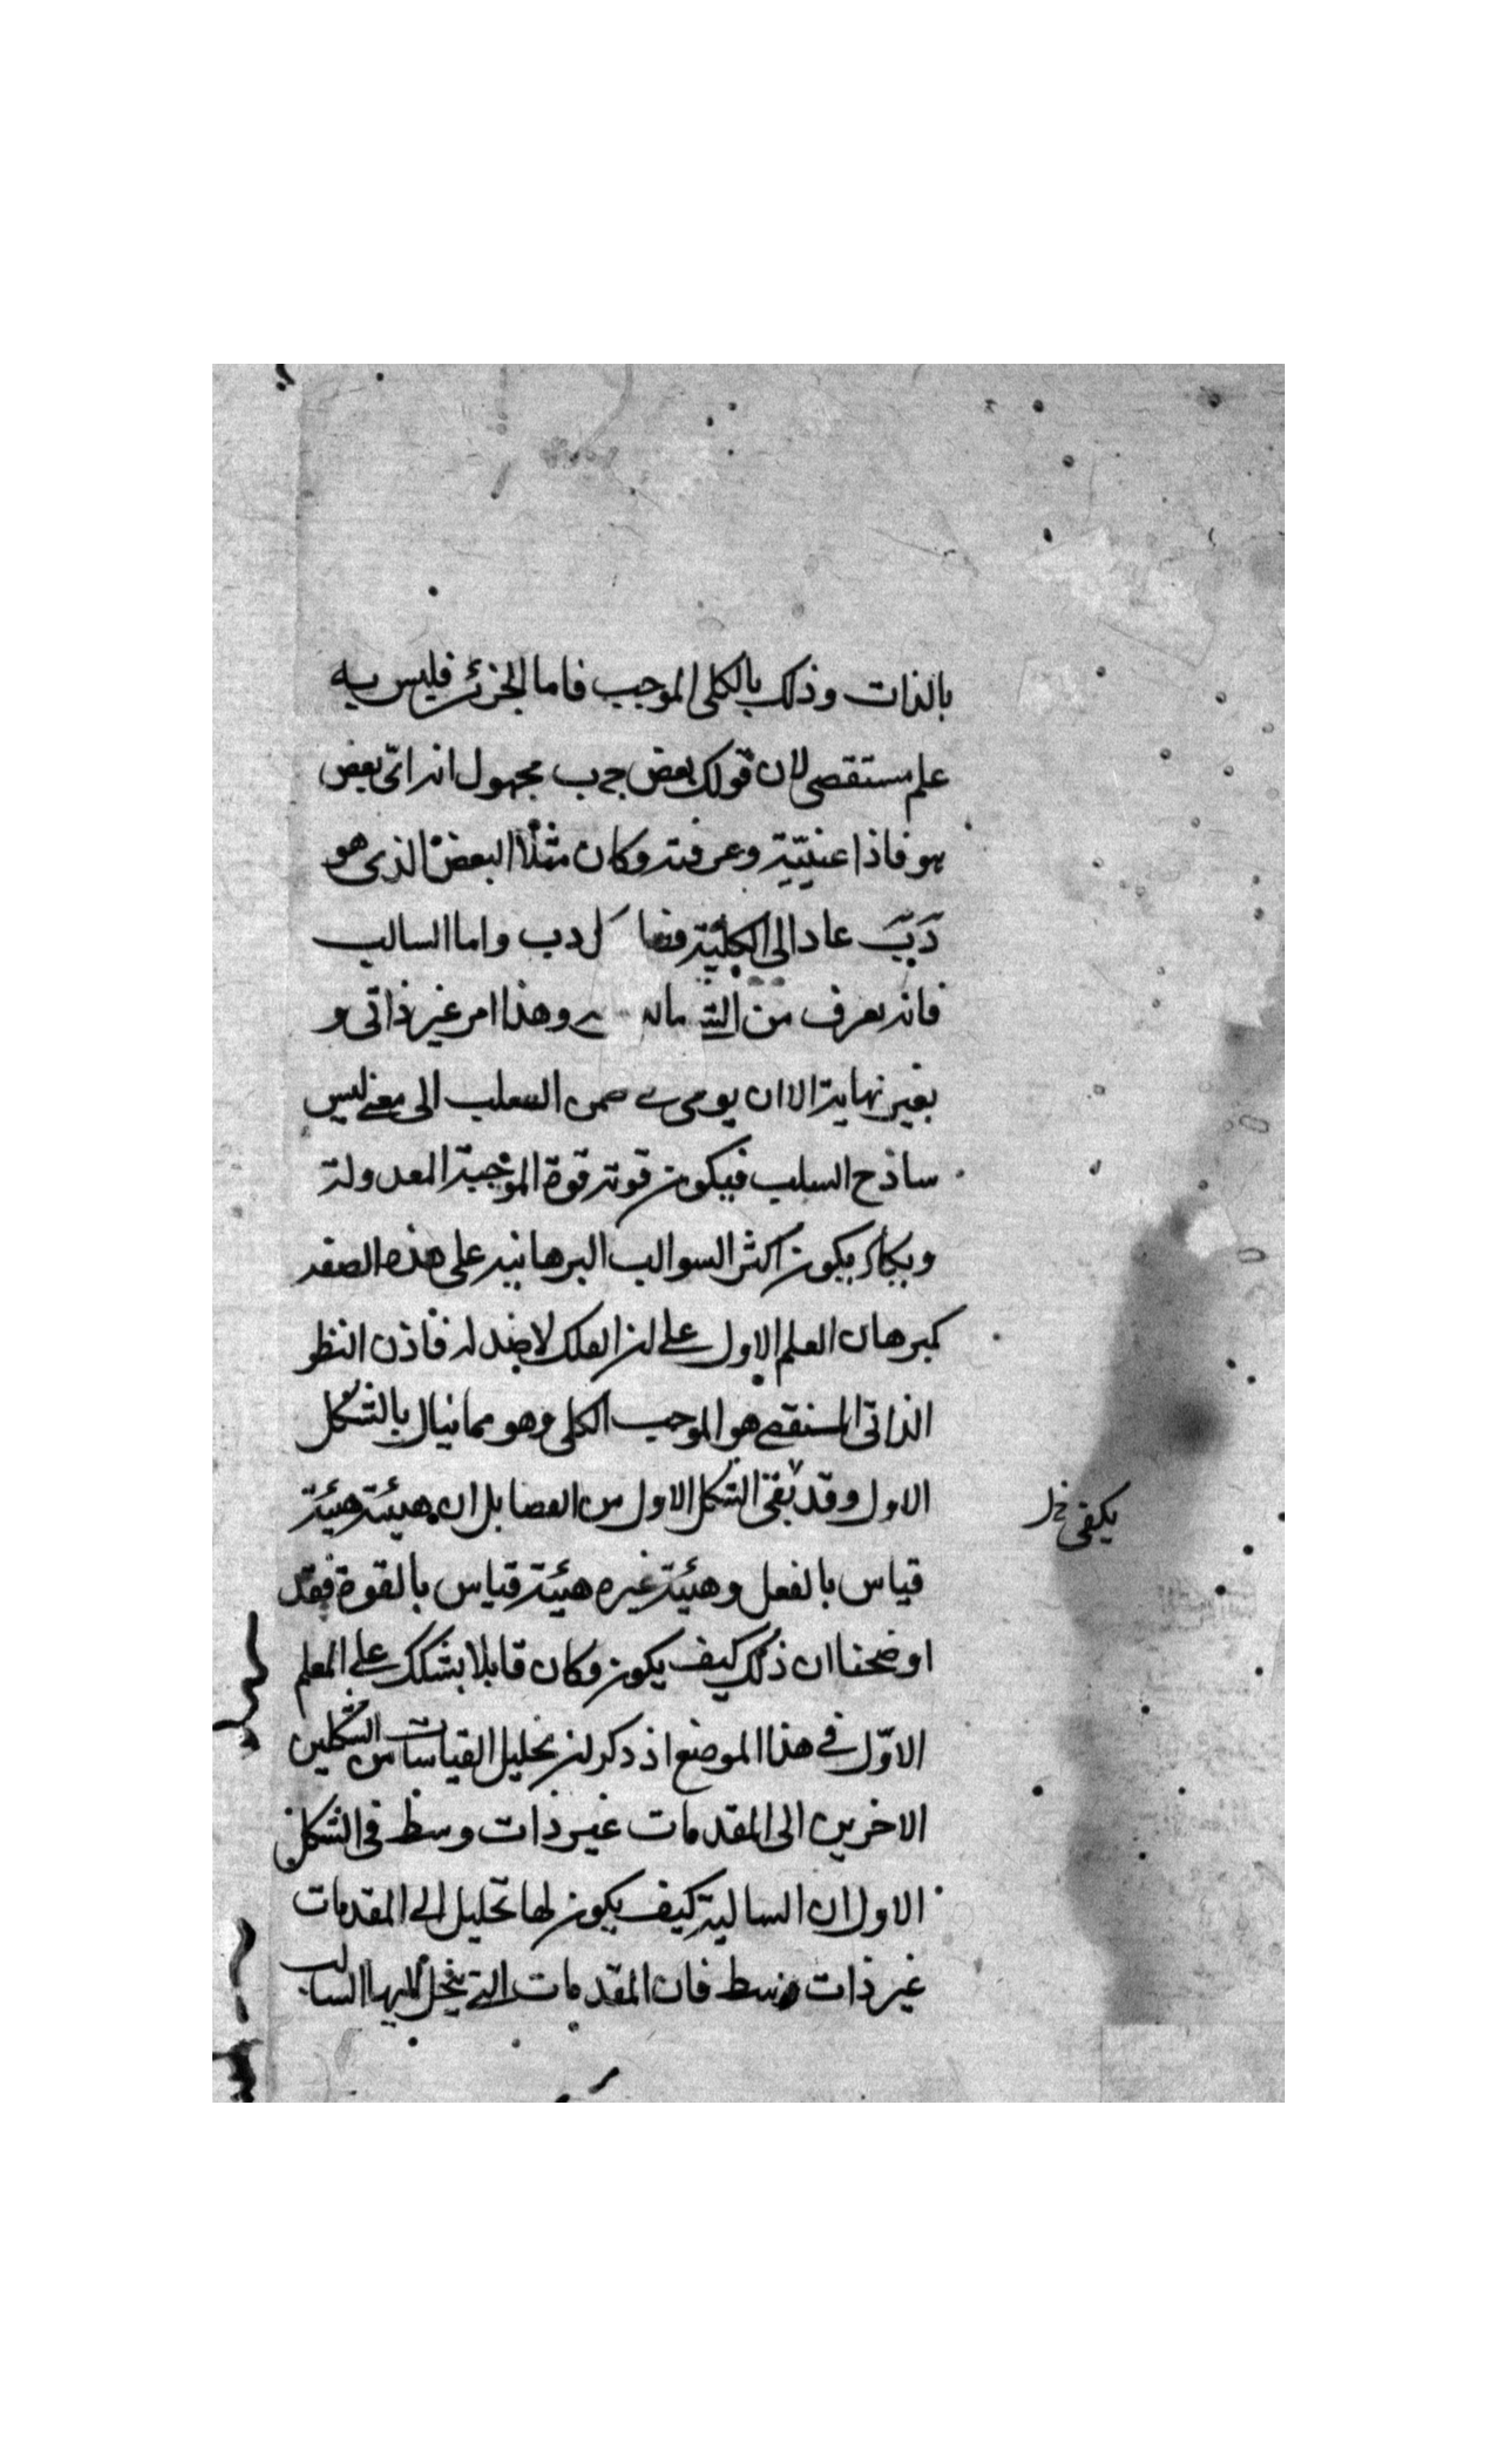 بالذات وذلك بالكلى الموجب فاما الجزئى فليس به
علم مستقصى لان قولك بعض ج ب مجهول انه اىّ بعض
هو فاذا عنيّته وعرفته وكان مثلاً البعض الذى هو
دَ بَ عاد الى الكليّة كل د ب واما السالب
فانه يعرف من وهذا امر غير ذاتى و
بغير نهاية الا ان يومى السلب الى معنى ليس
ساذج السلب فيكون قوته قوة الموجبة المعدولة
ويكاد يكون اكثر السوالب البرهانيه على هذه الصفه
كبرهان العلم الاول على ان الفلك لا ضد له فاذن النظر
الذاتى المستقصى هو الموجب الكلى وهو مما ينال بالشكل
الاول وقد الشكل الاول من بل ان هيئته هيئة
يكفى خ ل
قياس بالفعل وهيئة غيره هيئة قياس بالقوة فقد
اوضحنا ان ذلك كيف يكون وكان قايلا يشكك على المعلم
الاوّل فى هذا الموضع اذ ذكر ان تحليل القياسات من الشكلين
الاخرين الى المقدمات غير ذات وسط فى الشكل
الاول ان السالبة كيف يكون لها تحليل الى المقدمات
غير ذات وسط فان المقدمات التى ينحل اليها السالب